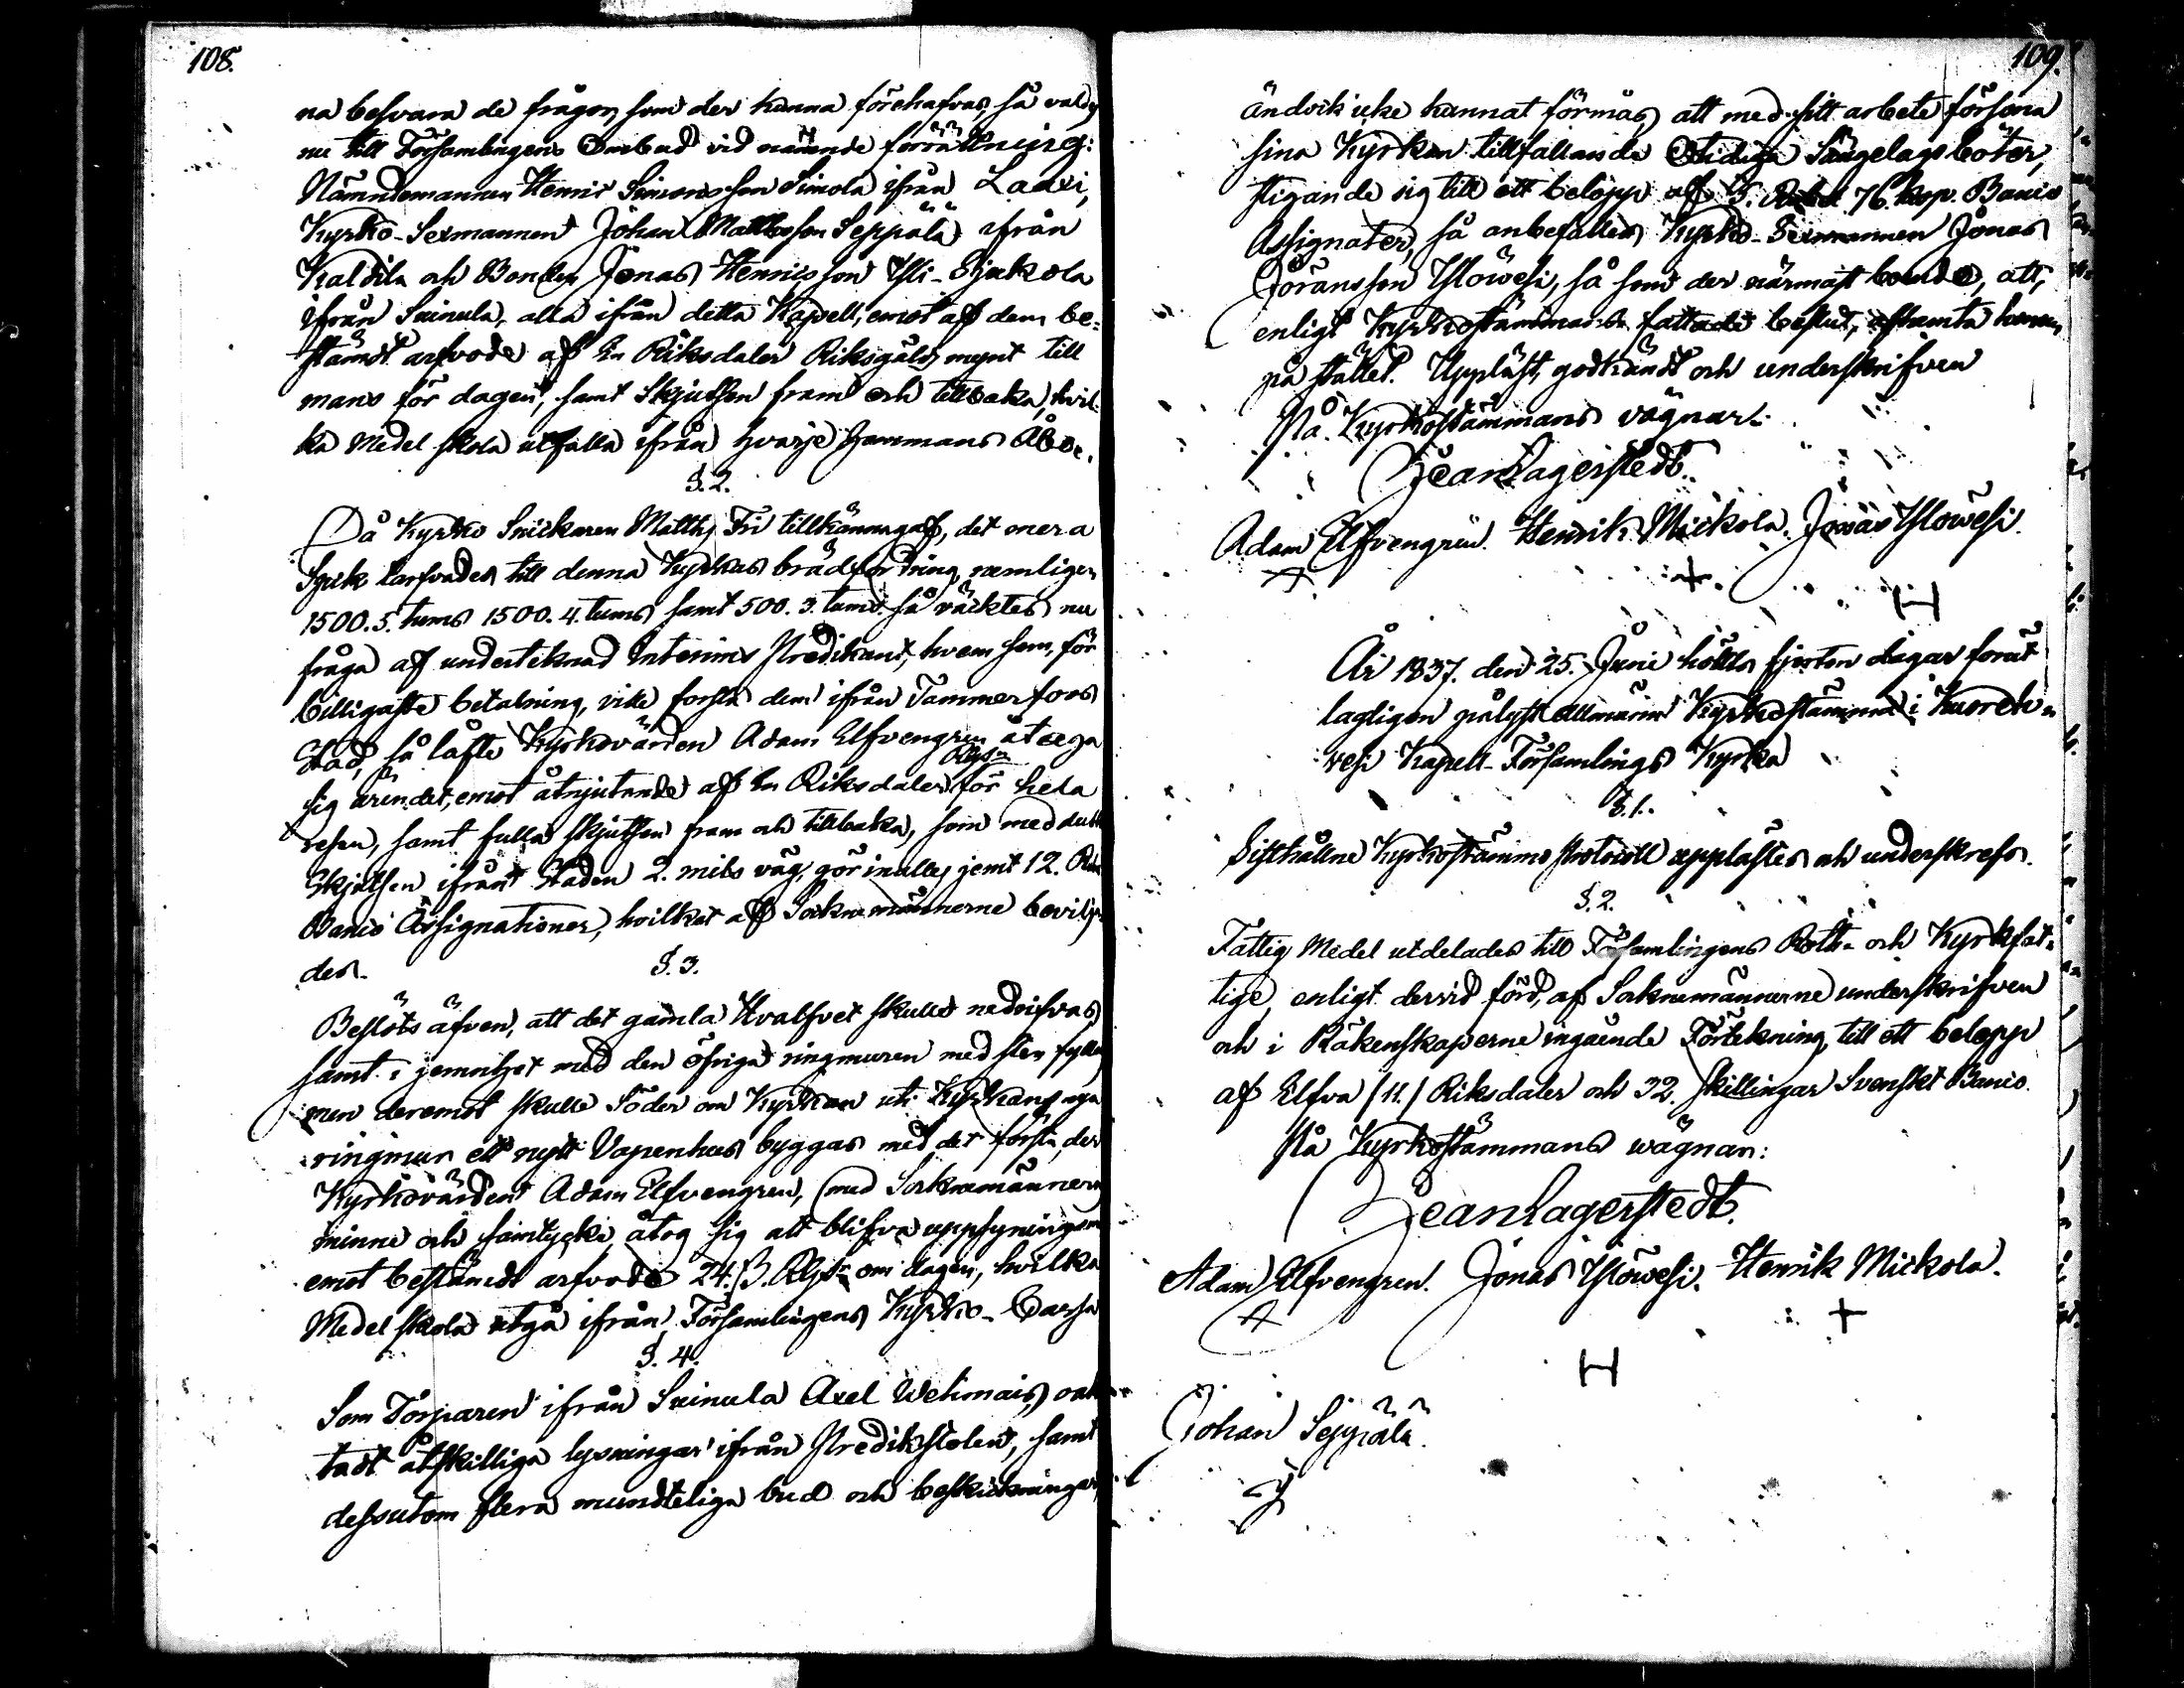 108.
na besvara de frågor, som der kunna förehafvas, så valdes
nu till Församlingens Ombud vid nämnde förrättning:
Nämndemannen Henric Simonsson Simola ifrån Laaxi,
Kyrko-Sexmannen Johan Mattsson Seppälä ifrån
Kaldila och Bonden Jonas Henricsson Yli-Sjukola
ifrån Suinula, alla ifrån detta Kapell, emot af dem be-
stämdt arfvode af En Riksdaler Riksgälds mynt till
mans för dagen, samt Skjutsen fram och tillbaka, hvil-
ka Medel skola utfalla ifrån hvarje Hemmans Åboe.
§. 2.
Då Kyrko Snickaren Matths Fri tillkännagaf, det mera
Spik tarfvades till denna Kyrkas brädfordring, nemligen
1500. 5. tums 1500. 4. tums samt 500. 3. tums. så väcktes nu
fråga af undertecknad Interims Predikant, hvem som, för
billigaste betalning, ville forsla dem ifrån Tammerfors
Stad, så låfte Kyrkovärden Adam Elfvengren åtaga
sig ärendet, emot åtnjutande af En Riksdaler Rgs för hela
resan, samt fulla skjutsen fram och tillbaka, som med dubb
Skjutsen ifrån Staden 2. mils väg, gör inalles jemt 12. Rdr
Banco Assignationer, hvilket af Socknemännerne bevilja-
des.
§. 3.
Beslöts äfven, att det gamla Hvalfvet skulle nedrifvas
samt i jemnhet med den öfriga ringmuren med sten fyllas
men deremot skulle Söder om Kyrkan uti Kyrkans nya
ringmur ett nytt Vapenhus byggas med det första, der
Kyrkovärden Adam Elfvengren, (med Socknemännern
minne och samtycke åtog sig att blifva uppsyningsm
emot bestämdt arfvode 24. ß. Rgs om dagen, hvilka
Medel skola utgå ifrån Församlingens Kyrko-Cassa
§. 4.
Som Torparen ifrån Suinula Axel Wehmais, oak
tadt åtskilliga lysningar ifrån Predikstolen, samt
dessutom flera mundteliga bud och beskickningar,
109.
ändock icke kunnat förmås, att med sitt arbete försona
sina Kyrkan tillfallande Otidiga Sängelags böter,
stigande sig till ett belopp af 5. Rubel 76. kop. Banco
Assignater, så anbefalles Kyrko-Sexmannen Jonas
Göransson Ylöwesi, så som der närmast boende, att,
enligt Kyrkostämmans fattade beslut, afhämta honom
på stället. Uppläst, godkändt och underskrifven
På Kyrkostämmans vägnar:
Jean Lagerstedt.
Adam Elfvengren. Henrik Mickola. Jonas Ylöwesi.
År 1837. den 25. Juni hölls fjorton dagar förut
lagligen pålyst allmänn Kyrkostämma i Kuoreh-
vesi Kapell-Församlings Kyrka
§. 1.
Sisthållne Kyrkostämmo Protocoll upplästes och underskrefs.
§. 2.
Fattig Medel utdelades till Församlingens Rote- och Kyrkfat-
tige, enligt dervid förd, af Socknemännerne underskrifven
och i Räkenskaperne ingående Förtekning, till ett belopp
af Elfva /11./ Riksdaler och 32. skillingar Svenskt Banco.
På Kyrkostämmans wägnar:
Jean Lagerstedt.
Adam Elfvengren. Jonas Ylöwesi. Henrik Mickola.
Johan Seppälä.